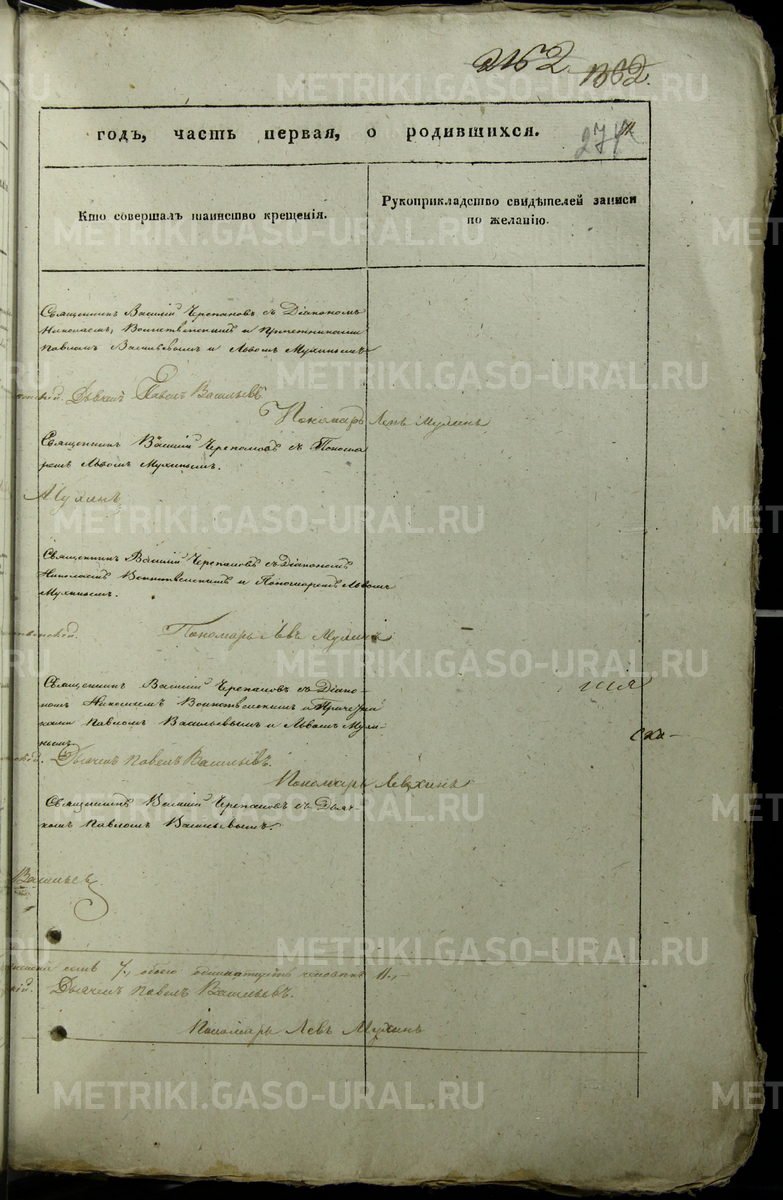 2162.
1362.
годъ, часть первая, о родившихся.
274
Кто совершалъ таинство крещенія.
Рукоприкладство свидѣтелей записи
по желанію.
Священникъ Василій Черепановъ съ Діакономъ
Николаемъ Воинственскимъ и Причетниками
Павломъ Васильевымъ и Львомъ Мухинымъ
Дьячекъ Павелъ Васильевъ
Пономарь Левъ Мухинъ
Священникъ Василій Черепановъ съ Понома
ремъ Львомъ Мухинымъ.
Мухинъ
Священникъ Василій Черепановъ съ Діакономъ
Николаемъ Воинственскимъ и Пономаремъ Львомъ
Мухинымъ.
Пономарь Левъ Мухинъ
Священникъ Василій Черепановъ съ Діако-
номъ Николаемъ Воинственскимъ и Причетни
ками Павломъ Васильевымъ и Львомъ Мухи-
нымъ
Дьячекъ Павелъ Васильевъ.
Пономарь
Священникъ Василій Черепановъ съ Дьяч-
комъ Павломъ Васильевымъ.
Васильевъ
7, обоего
Дьячекъ Павелъ Васильевъ.
Пономарь Левъ Мухинъ
METRIKI.GASO-URAL.RU